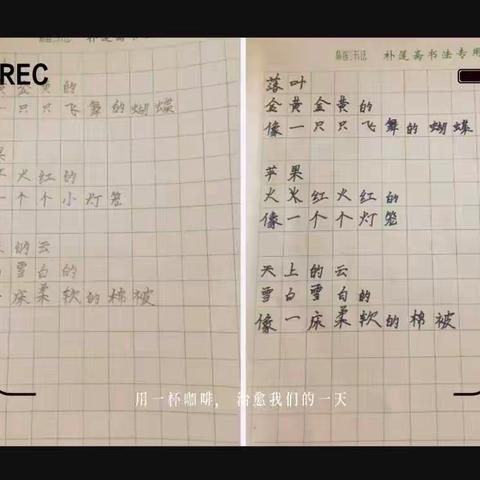 REC
黄金黄的
一只只飞舞的蝴蝶
果
火红的
一个个小灯笼
的云
雪白的
床柔软的棉被
朴莲斋书法专用
落叶
金黄金黄的
像一只只飞舞的蝴蝶
苹果
火红火红的
像一个个灯笼
天上的云
雪白雪白的
像一床柔软的棉被
用一杯咖啡，治愈我们的一天